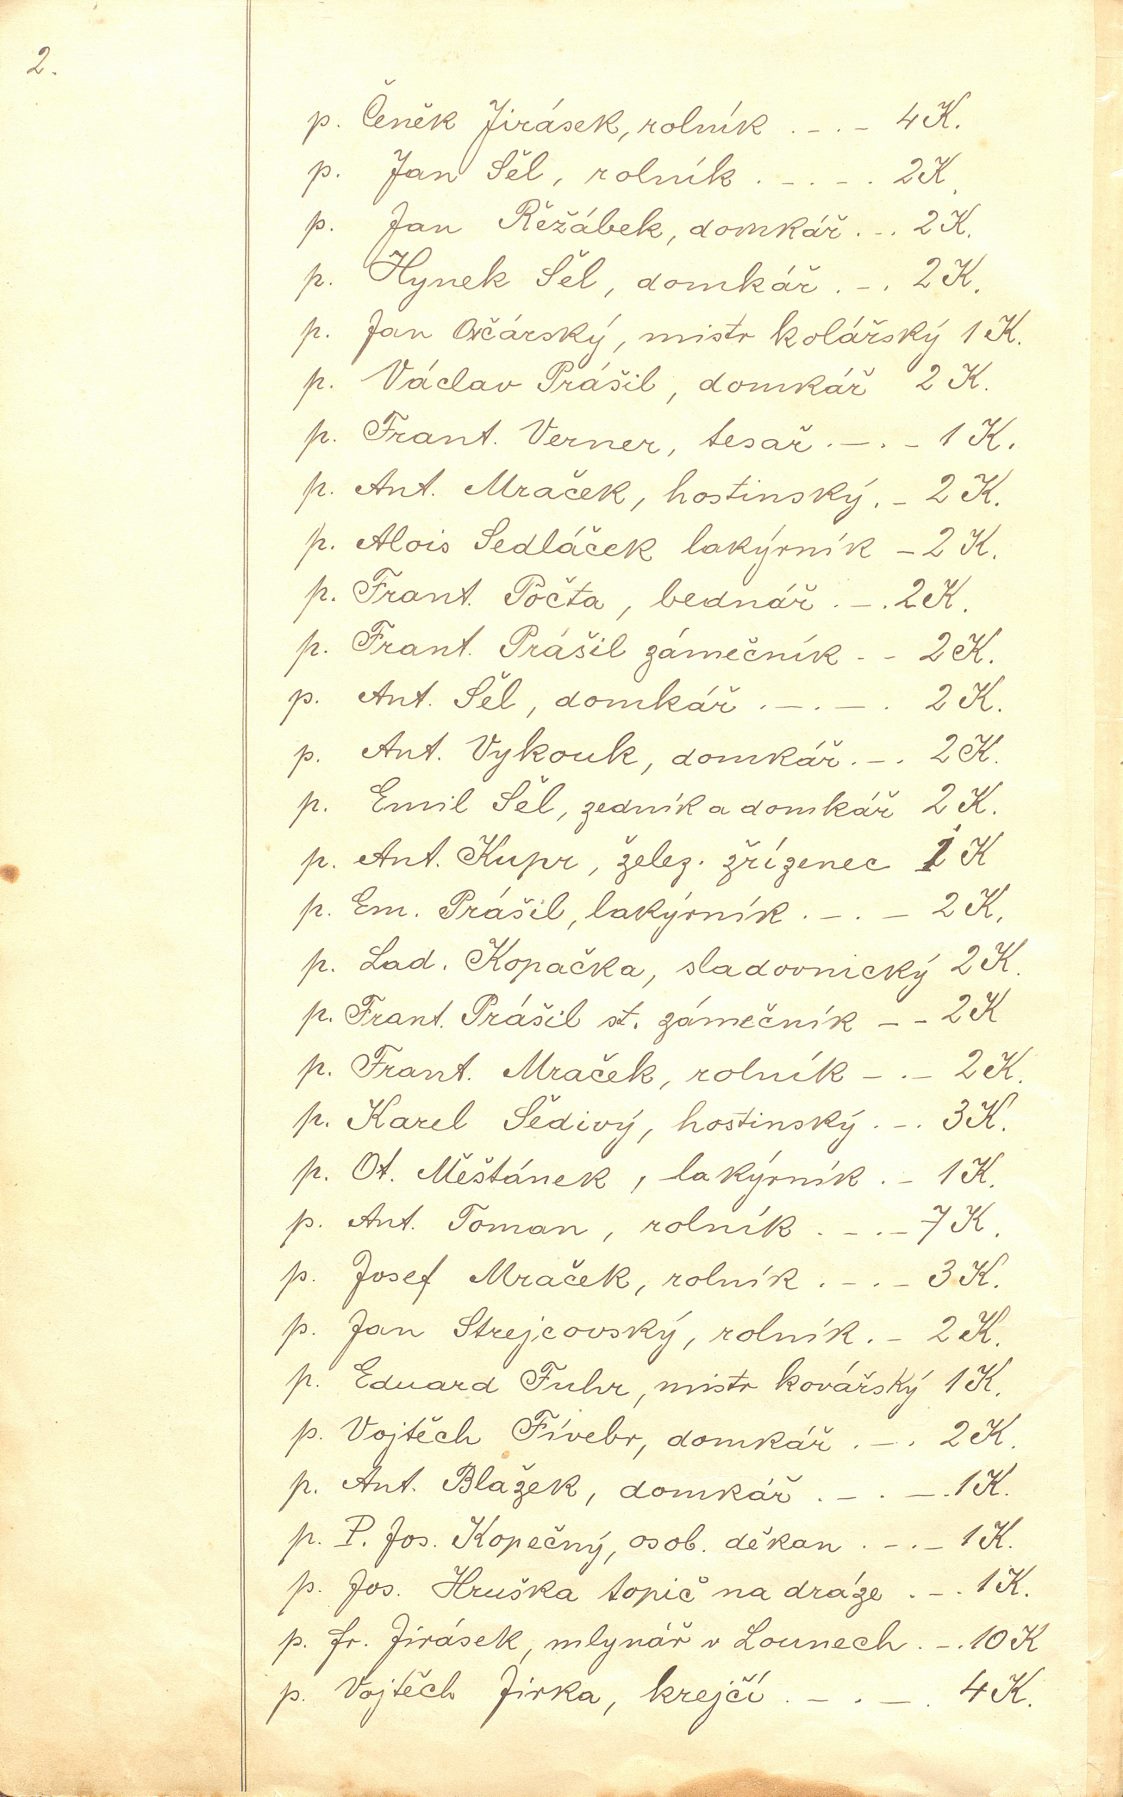 2.
p. Čeněk Jirásek, rolník . – . – 4 K.
p. Jan Šěl, rolník . – . – . 2 K.
p. Jan Řěžábek, domkář . – . 2 K.
p. Hynek Šěl, domkář . – . 2 K.
p. Jan Ovčárský, mistr kolářský 1 K.
p. Václav Prášil, domkář 2 K.
p. Frant. Verner, tesař . – . – 1 K.
p. Ant. Mraček, hostinský . – 2 K.
p. Alois Sedláček lakýrník – 2 K.
p. Frant. Počta, bednář . – . 2 K.
p. Frant. Prášil zámečník – – 2 K.
p. Ant. Šěl, domkář . – . – . 2 K.
p. Ant. Vykouk, domkář . – . 2 K.
p. Emil Šěl, zedník a domkář 2 K.
p. Ant. Kupr, želez. zřízenec 1 K
p. Em. Prášil, lakýrník . – . – 2 K.
p. Lad. Kopačka, sladovnický 2 K.
p. Frant. Prášil st. zámečník – – 2 K
p. Frant. Mraček, rolník – . – 2 K.
p. Karel Šědivý, hostinský . – . 3 K.
p. Ot. Měšťánek, lakýrník . – 1 K.
p. Ant. Toman, rolník . – . – 7 K.
p. Josef Mraček, rolník . – . – 3 K.
p. Jan Strejcovský, rolník . – 2 K.
p. Eduard Fuhr, mistr kovářský 1 K.
p. Vojtěch Fívebr, domkář . – . 2 K.
p. Ant. Blažek, domkář . – . – . 1 K.
p. P. Jos. Kopečný, osob. děkan . – . – 1 K.
p. Jos. Hruška topič na dráze . – . 1 K.
p. fr. Jirásek, mlynář v Lounech . – . 10 K
p. Vojtěch Jirka, krejčí . – . – . 4 K.